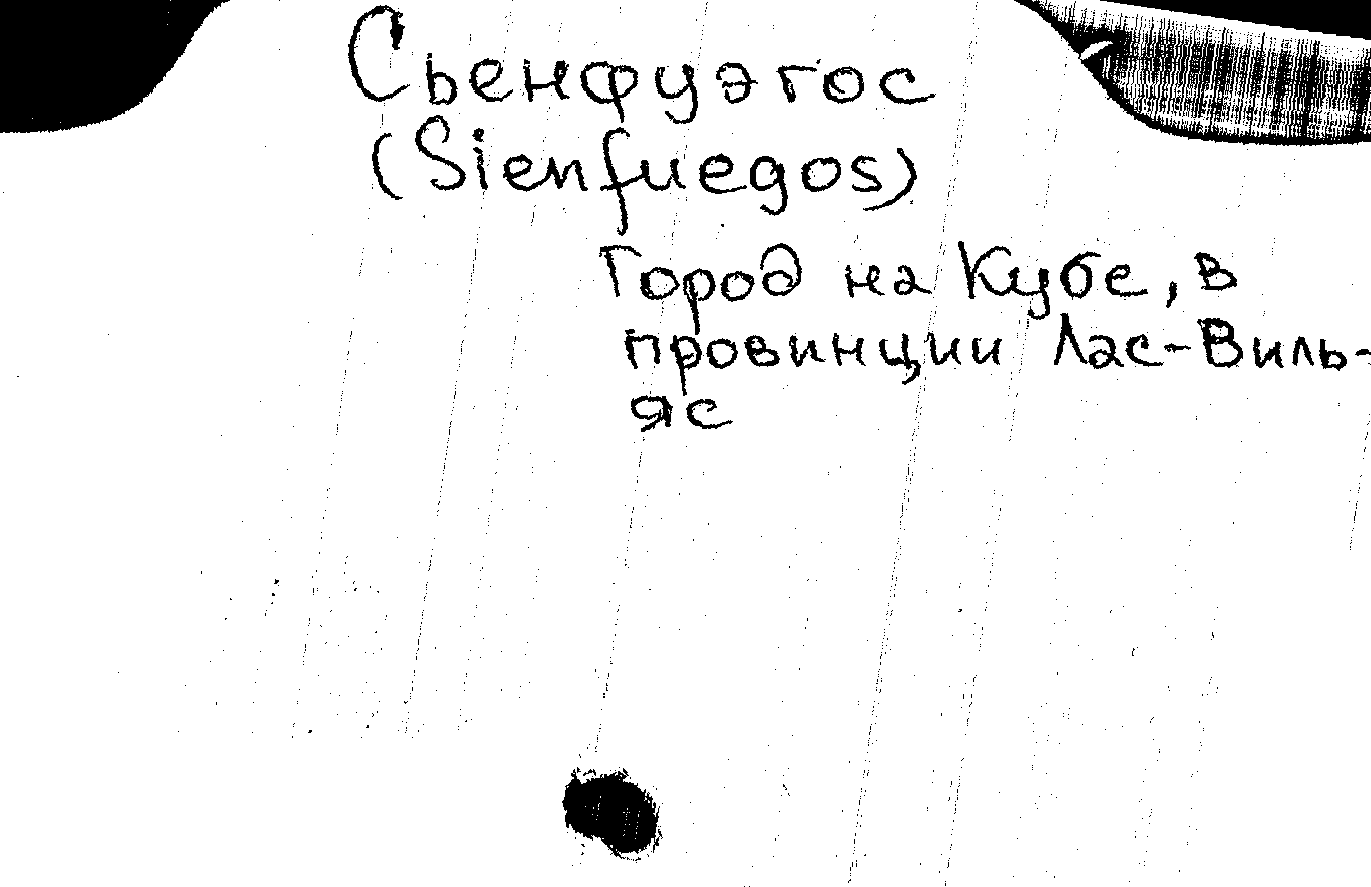 Сьенфуэгос
(Sienfuegos)
Город на Кубе, в
провинции Лас-Виль-
яс